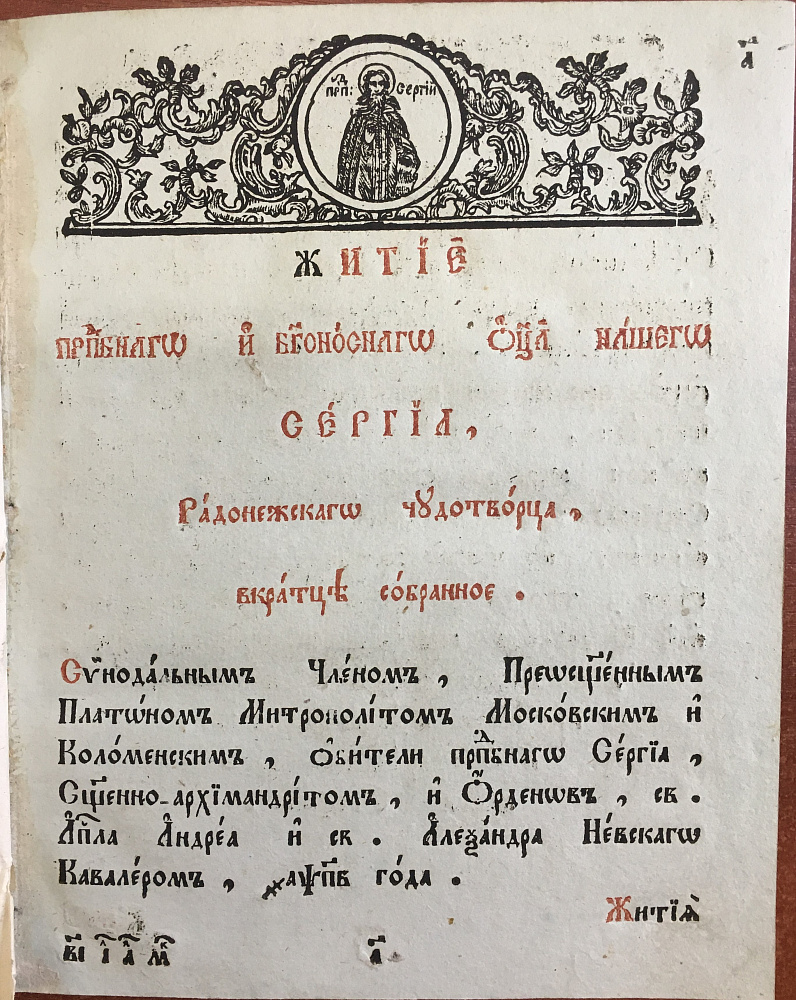 а҃
прп҃д: Сергїй
ЖИТІЀ
прпⷣбнагѡ и҆ бг҃оно́снагѡ ѻ҆ц҃а̀ на́шегѡ
СЕ́РГЇА,
Ра́донежскагѡ чꙋдотво́рца,
вкра́тцѣ со́бранное.
Сѷнода́льнымъ Чле́номъ, Преѡсщ҃е́ннымъ
Платѡ́номъ Митрополі́томъ Моско́вскимъ и҆
Коло́менскимъ, ѻ҆би́тели прпⷣбнагѡ Се́ргїа,
Сщ҃е́нно-архїмандрі́томъ, и҆ Ѻ҆́рденѡвъ, св.
А҆п҃ла А҆ндре́а и҆ св. А҆леѯа́ндра Не́вскагѡ
Кавале́ромъ, ҂аѱп҃в го́да.
Житїѧ̀
а҃